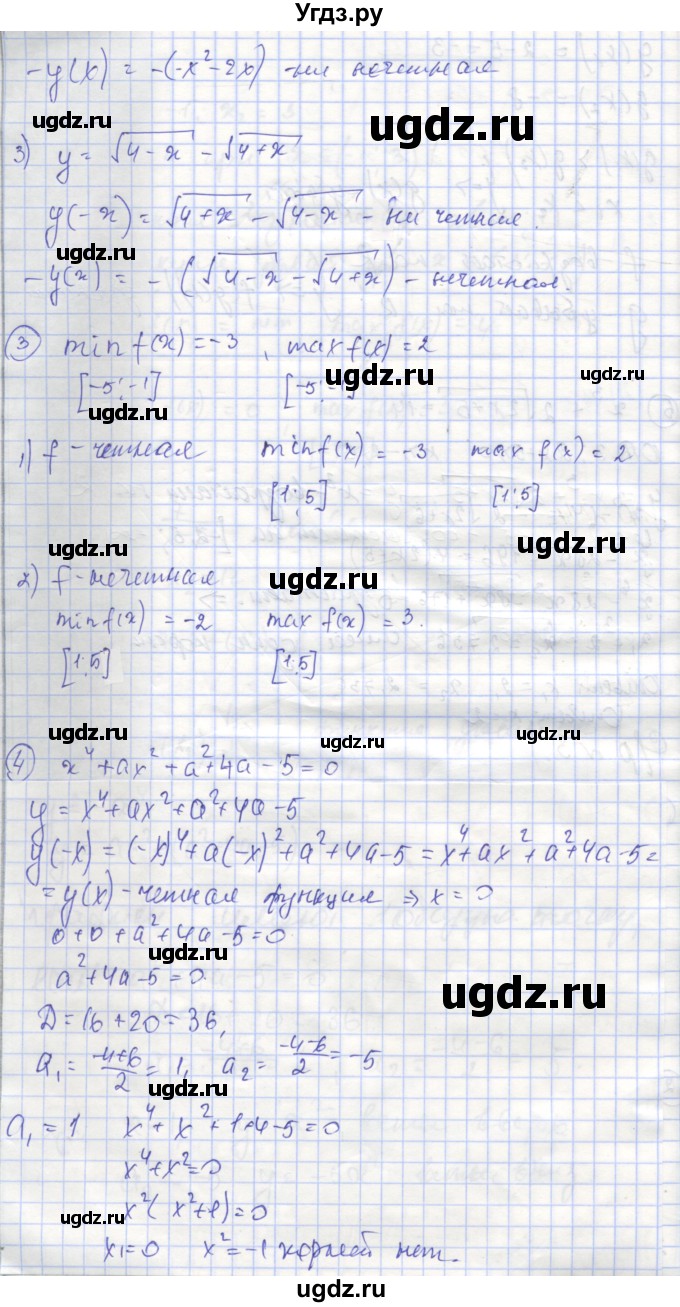 Угдз.ру
-y(x) = -(-x²-2x) -ни нечетная
ugdz.ru
ugdz.ru
3) y = √4-x - √4+x
y(-x) = √4+x - √4-x - ни четная.
ugdz.ru
-y(x) = -(√4-x - √4+x) - нечетная.
③ min f(x) = -3, max f(x) = 2
ugdz.ru
[-5;-1] [-5;-1]
ugdz.ru
1) f - четная min f(x) = -3 max f(x) = 2
[1;5] [1;5]
ugdz.ru
2) f - нечетная
ugdz.ru
min f(x) = -2 max f(x) = 3.
[1;5] [1;5]
ugdz.ru
ugdz.ru
④ x⁴+ax²+a²+4a-5=0
y = x⁴+ax²+a²+4a-5
y(-x) = (-x)⁴+a(-x)²+a²+4a-5 = x⁴+ax²+a²+4a-5=
= y(x) - четная функция ⇒ x = 0
0+0+a²+4a-5=0
a²+4a-5=0
ugdz.ru
D=16+20=36,
a₁ = (-4+6)/2 = 1, a₂ = (-4-6)/2 = -5
ugdz.ru
a₁ = 1 x⁴+x²+1+4-5=0
x⁴+x²=0
x²(x²+1)=0
ugdz.ru
x₁=0 x²=-1 корней нет.
ugdz.ru
ugdz.ru